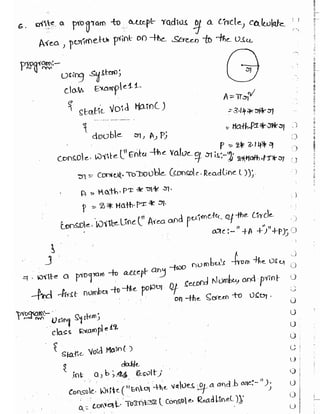 6. write a program to accept radius of a Circle, calculate
Area, perimeter print on the Screen to the User
program:-
Using System;
class Example11
{
static void Main()
{
double r, A, P;
Console.Write("Enter the Value of r is:-");
r = Convert.ToDouble(Console.ReadLine());
A = Math.PI * r * r.
P = 2 * Math.PI * r.
Console.WriteLine("Area and perimeter of the Circle
are:-" +A +","+P);
}
}
r
A = πr²
= 3.14 * r * r
= Math.PI * r * r
P = 2 * 3.14 * r
= 2 * Math.PI * r
7. write a program to accept any two numbers from the User
find first number to the power of Second Number and print
on the Screen to User.
program:-
Using System;
class Example12
{
static Void Main()
{
int a, b; double result;
Console.Write("Enter the values of a and b are:-");
a = Convert.ToInt32(Console.ReadLine());